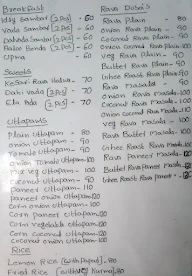 BreakFast
Idly Sambar (2pcs) - 60
Vada Sambar (2pcs) - 60
Sambar (2pcs) - 60
Bonda (2pcs) - 60
Upma - 60
Sweets
Kesari Rava Halva - 70
Dahi Vada (2pcs) - 70
(2pcs) - 70
Uttapams
Plain Uttapam - 80
onion Uttapam - 90
Tomato Uttapam - 90
onion Tomato Uttapam - 100
mix veg Uttapam - 100
Coconut Uttapam - 90
Paneer Uttapam - 110
Paneer onion Uttapam - 120
Corn onion Uttapam - 100
Corn Paneer Uttapam - 120
Corn vegetable Uttapam - 120
Corn Coconut Uttapam - 120
Coconut onion Uttapam - 100
Rice
Lemon Rice (with Papad) - 80
Fried Rice (with veg Kurma) - 80
Rava Dosa's
Rava Plain - 80
onion Rava Plain - 90
Coconut Rava Plain - 90
Onion Coconut Rava Plain - 100
veg Rava Plain - 90
Butter Rava Plain - 90
Ghee Roast Rava Plain - 90
Rava Masala - 90
onion Rava Masala - 100
Coconut Rava Masala - 100
Onion Coconut Rava Masala
Veg Rava Masala - 100
Rava Butter Masala - 100
Ghee Roast Rava Masala - 100
Rava Paneer Masala - 120
Butter Rava Paneer Masala
Ghee Roast Rava Paneer